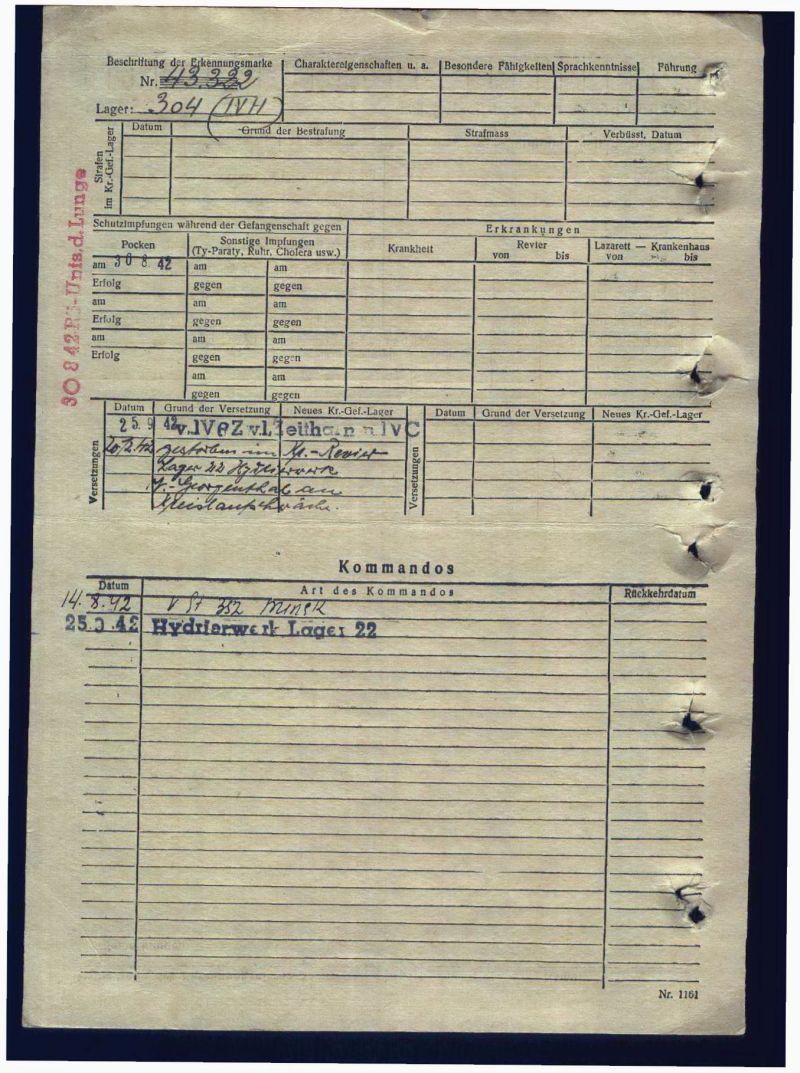 Beschriftung der Erkennungsmarke
Nr. 43.322
Lager: 304 (IVH)
Charaktereigenschaften u. a.
Besondere Fähigkeiten
Sprachkenntnisse
Führung
Strafen im Kr.-Gef.-Lager
Datum
Grund der Bestrafung
Strafmass
Verbüsst, Datum
30 8 42 Rö-Unts. d. Lunge
Schutzimpfungen während der Gefangenschaft gegen
Erkrankungen
Pocken
Sonstige Impfungen
(Ty-Paraty, Ruhr, Cholera usw.)
Krankheit
Revier
von bis
Lazarett — Krankenhaus
von bis
am 30 8. 42 am am
Erfolg gegen gegen
am am am
Erfolg gegen gegen
am am am
Erfolg gegen gegen
am am
gegen gegen
Versetzungen
Datum Grund der Versetzung Neues Kr.-Gef.-Lager
25. 9 42 v. IV Zeithain n IV C
gestorben im Kr.-Revier
Lager 22 Hydrierwerk
Georgenthal an
Kreislaufschwäche.
Versetzungen
Datum Grund der Versetzung Neues Kr.-Gef.-Lager
Kommandos
Datum Art des Kommandos Rückkehrdatum
14. 8. 42 v St 352 Minsk
25. 9 42 Hydrierwerk Lager 22
Nr. 1161